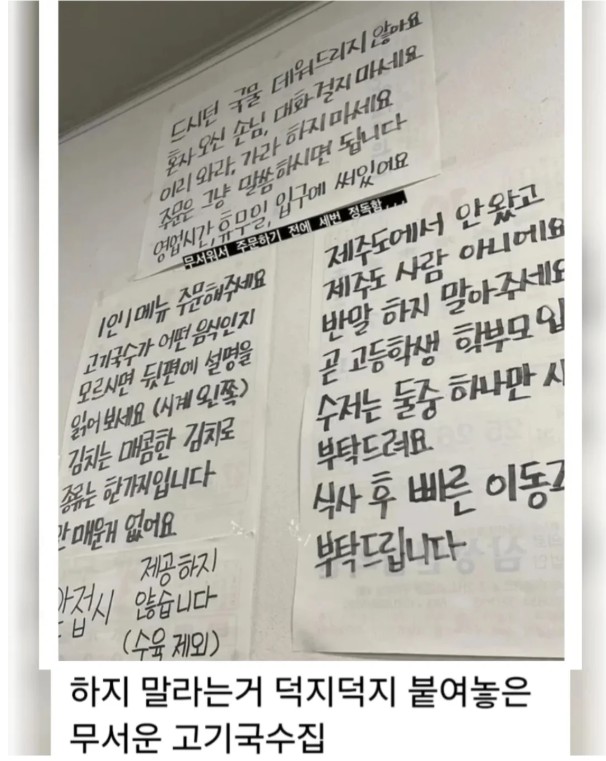 드시던 국물 데워드리지 않아요
혼자 오신 손님, 대화 걸지 마세요
이리 와라, 가라 하지 마세요
주문은 그냥 말씀하시면 됩니다
영업시간, 휴무일, 입구에 써있어요
무서워서 주문하기 전에 세번 정독함...
1인 1메뉴 주문해주세요
고기국수가 어떤 음식인지
모르시면 뒷편에 설명을
읽어 보세요 (시계 왼쪽)
김치는 매콤한 김치로
종류는 한가지입니다
안 매운거 없어요
제공하지
앞접시 않습니다
(수육 제외)
제주도에서 안 왔고
제주도 사람 아니에요
반말 하지 말아주세요
곧 고등학생 학부모입
수저는 둘중 하나만 사
부탁드려요
식사 후 빠른 이동
부탁드립니다
하지 말라는거 덕지덕지 붙여놓은
무서운 고기국수집